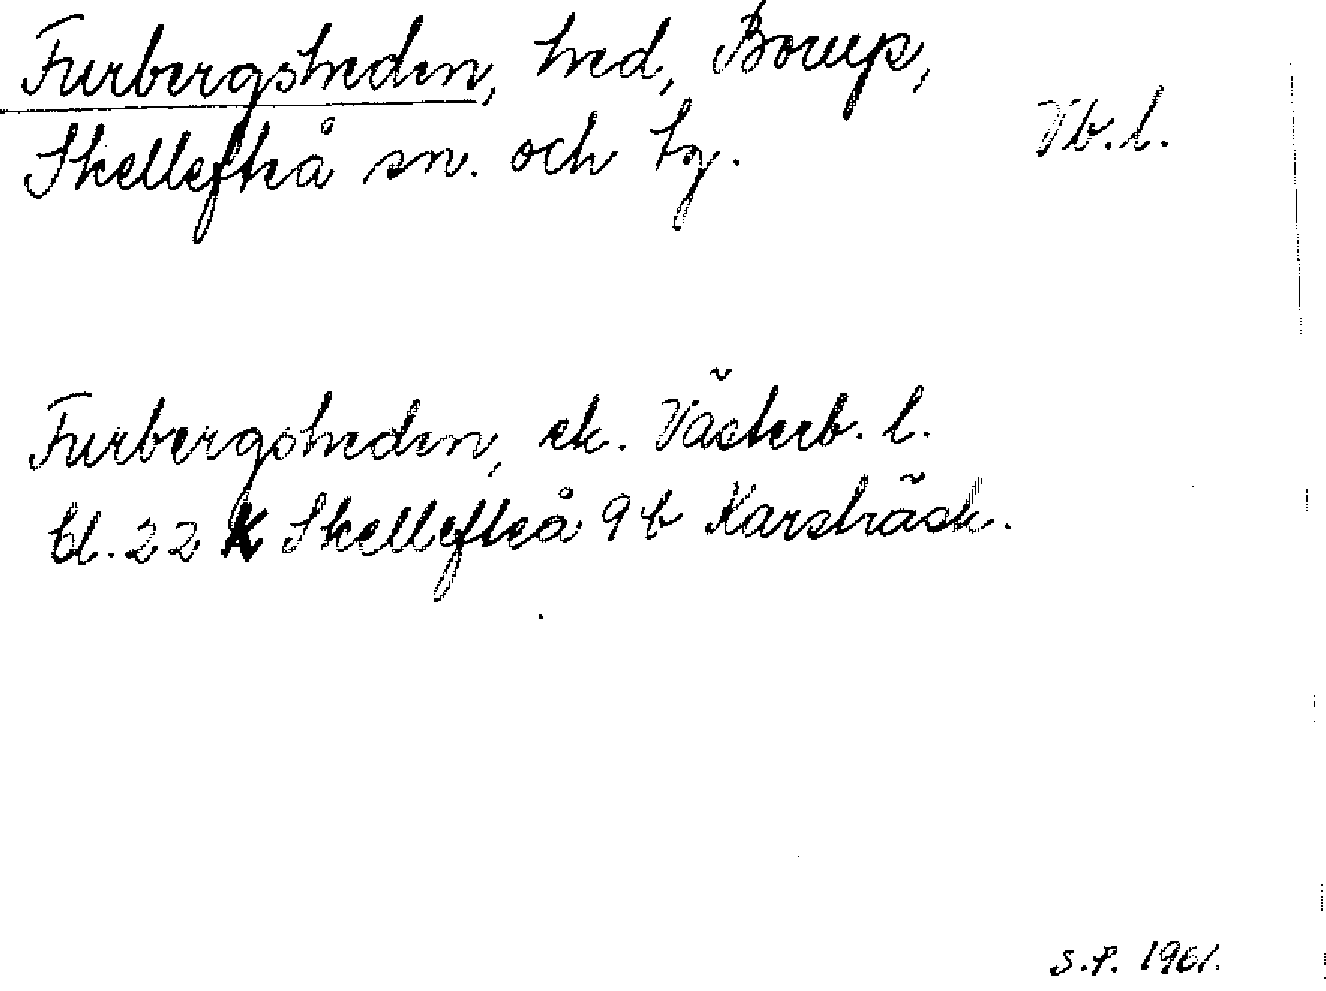 Furbergsheden, hed, Borup,
Skellefteå sn. och tg. Vb.l.
Furbergsheden, ek. Västerb. l.
bl. 22 K Skellefteå 9 b Karsträsk.
S.P. 1961.